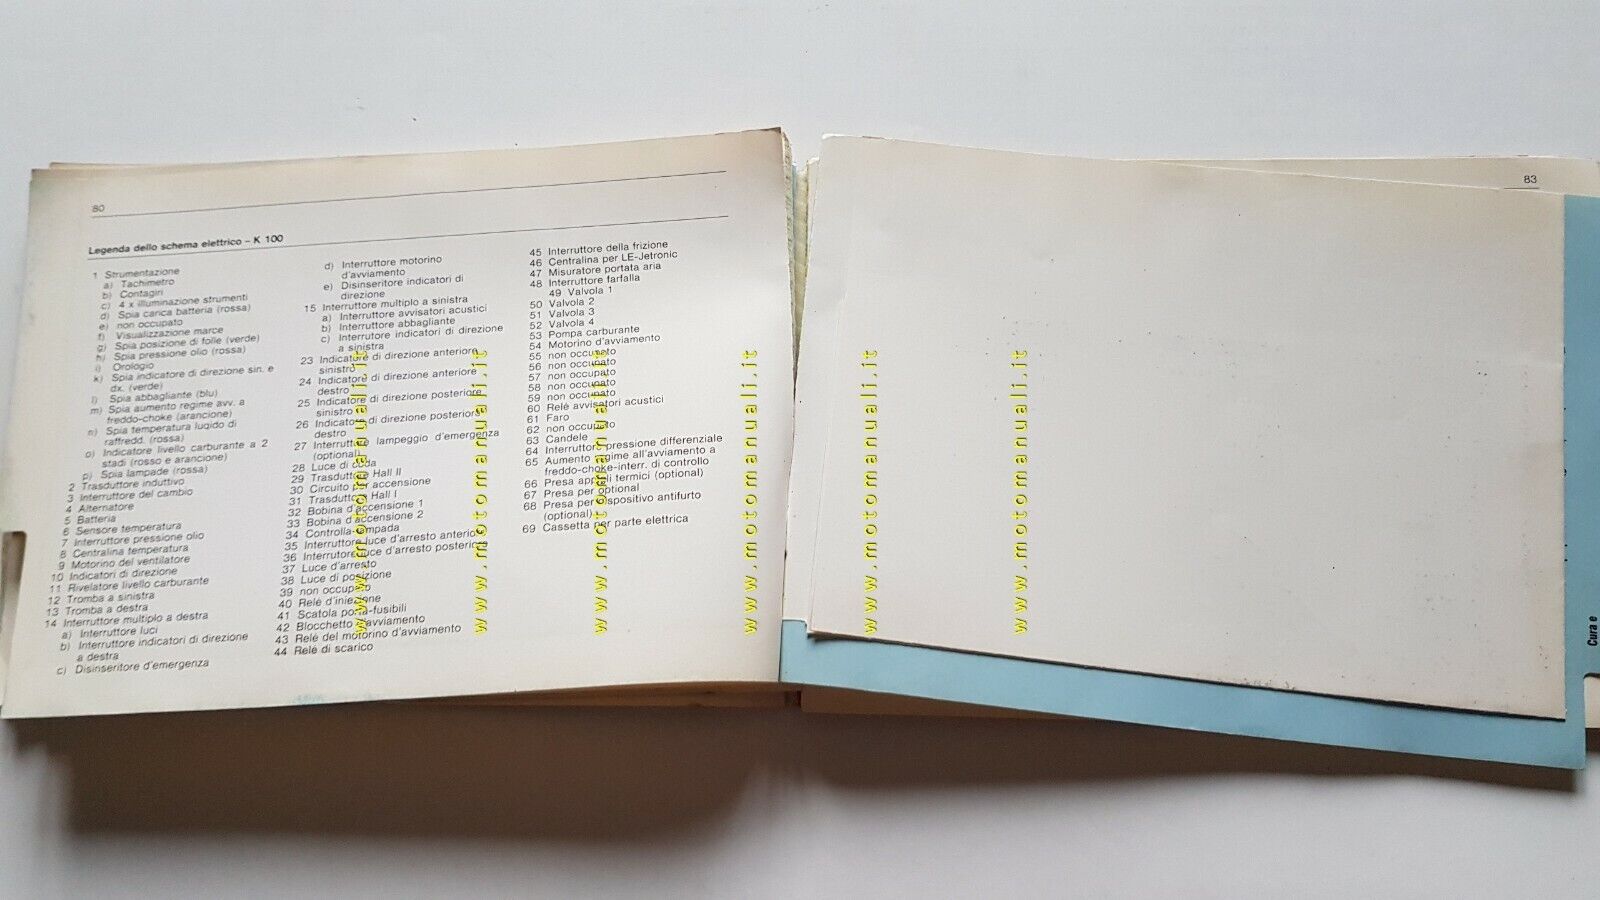 80
Legenda dello schema elettrico – K 100
1 Strumentazione
a) Tachimetro
b) Contagiri
c) 4 x illuminazione strumenti
d) Spia carica batteria (rossa)
e) non occupato
f) Visualizzazione marce
g) Spia posizione di folle (verde)
h) Spia pressione olio (rossa)
i) Orologio
k) Spia indicatore di direzione sin. e
dx. (verde)
l) Spia abbagliante (blu)
m) Spia aumento regime avv. a
freddo-choke (arancione)
n) Spia temperatura luqido di
raffredd. (rossa)
o) Indicatore livello carburante a 2
stadi (rosso e arancione)
p) Spia lampade (rossa)
2 Trasduttore induttivo
3 Interruttore del cambio
4 Alternatore
5 Batteria
6 Sensore temperatura
7 Interruttore pressione olio
8 Centralina temperatura
9 Motorino del ventilatore
10 Indicatori di direzione
11 Rivelatore livello carburante
12 Tromba a sinistra
13 Tromba a destra
14 Interruttore multiplo a destra
a) Interruttore luci
b) Interruttore indicatori di direzione
a destra
c) Disinseritore d'emergenza
d) Interruttore motorino
d'avviamento
e) Disinseritore indicatori di
direzione
15 Interruttore multiplo a sinistra
a) Interruttore avvisatori acustici
b) Interruttore abbagliante
c) Interrutore indicatori di direzione
a sinistra
23 Indicatore di direzione anteriore
sinistro
24 Indicatore di direzione anteriore
destro
25 Indicatore di direzione posteriore
sinistro
26 Indicatore di direzione posteriore
destro
27 Interruttore lampeggio d'emergenza
(optional)
28 Luce di coda
29 Trasduttore Hall II
30 Circuito per accensione
31 Trasduttore Hall I
32 Bobina d'accensione 1
33 Bobina d'accensione 2
34 Controlla-lampada
35 Interruttore luce d'arresto anteriore
36 Interrutore luce d'arresto posteriore
37 Luce d'arresto
38 Luce di posizione
39 non occupato
40 Relé d'iniezione
41 Scatola porta-fusibili
42 Blocchetto d'avviamento
43 Relé del motorino d'avviamento
44 Relé di scarico
45 Interruttore della frizione
46 Centralina per LE-Jetronic
47 Misuratore portata aria
48 Interruttore farfalla
49 Valvola 1
50 Valvola 2
51 Valvola 3
52 Valvola 4
53 Pompa carburante
54 Motorino d'avviamento
55 non occupato
56 non occupato
57 non occupato
58 non occupato
59 non occupato
60 Relé avvisatori acustici
61 Faro
62 non occupato
63 Candele
64 Interruttore pressione differenziale
65 Aumento regime all'avviamento a
freddo-choke-interr. di controllo
66 Presa appelli termici (optional)
67 Presa per optional
68 Presa per dispositivo antifurto
(optional)
69 Cassetta per parte elettrica
www.motomanuali.it
www.motomanuali.it
www.motomanuali.it
www.motomanuali.it
www.motomanuali.it
www.motomanuali.it
83
Cura e